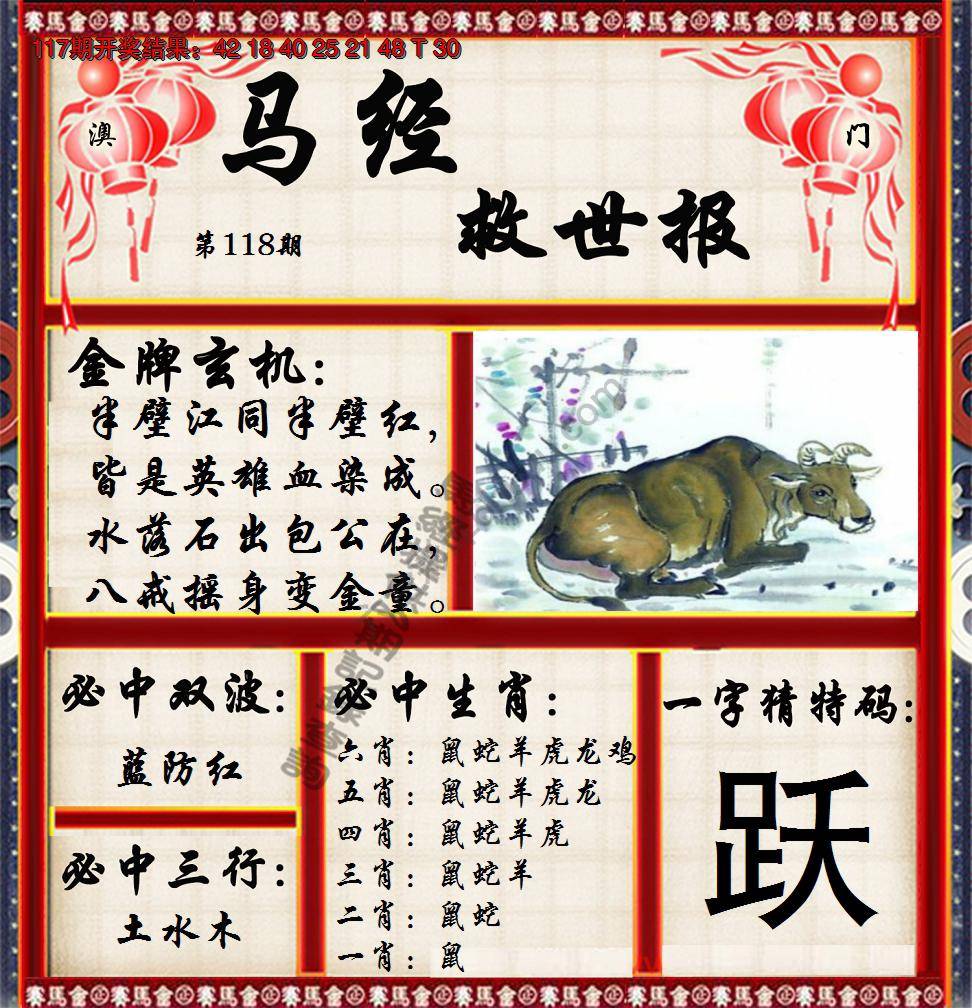 117期开奖结果：42 18 40 25 21 48 T 30
澳
门
马经
救世报
第118期
金牌玄机：
半壁江同半壁红，
皆是英雄血染成。
水落石出包公在，
八戒摇身变金童。
必中双波：
蓝防红
必中三行：
土水木
必中生肖：
六肖：鼠蛇羊虎龙鸡
五肖：鼠蛇羊虎龙
四肖：鼠蛇羊虎
三肖：鼠蛇羊
二肖：鼠蛇
一肖：鼠
一字猜特码：
跃